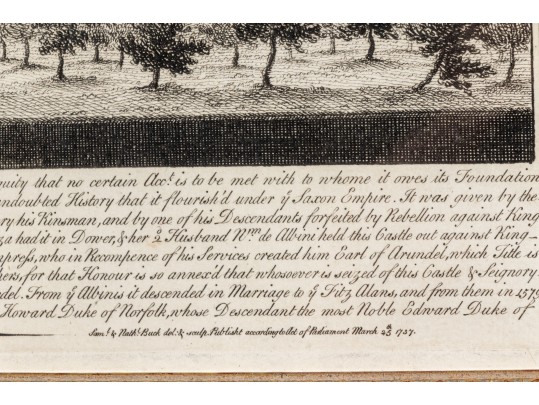 quity that no certain Acc.t is to be met with to whome it owes its Foundation
ndoubted History that it flourish'd under ẏ Saxon Empire. It was given by the
ry his Kinsman, and by one of his Descendants forfeited by Rebellion against King
za had it in Dower, & her 2 Husband W.m de Albini held this Castle out against King
mpress, who in Recompence of his Services created him Earl of Arundel, which Title is
hers, for that Honour is so annex'd that whosoever is seized of this Castle & Seignory
del. From ẏ Albinis it descended in Marriage to ẏ Fitz Alans, and from them in 1579
Howard Duke of Norfolk, whose Descendant the most Noble Edward Duke of
Sam.l & Nath.l Buck del: & sculp. Publisht according to Act of Parliament March 25th 1737.